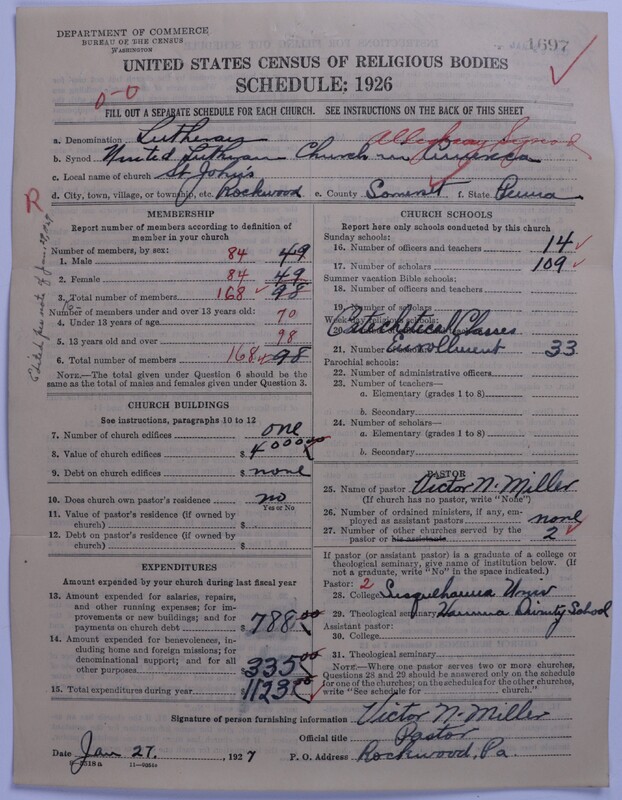 DEPARTMENT OF COMMERCE
BUREAU OF THE CENSUS
WASHINGTON
1697
UNITED STATES CENSUS OF RELIGIOUS BODIES
SCHEDULE: 1926
0-0
FILL OUT A SEPARATE SCHEDULE FOR EACH CHURCH. SEE INSTRUCTIONS ON THE BACK OF THIS SHEET
a. Denomination Lutheran Allegheny Synod
b. Synod United Lutheran Church in America
c. Local name of church St John's
d. City, town, village, or township, etc. Rockwood e. County Somerset f. State Penna
R
MEMBERSHIP
Report number of members according to definition of member in your church
Number of members, by sex:
1. Male 84 49
2. Female 84 49
3. Total number of members 168 98
Number of members under and over 13 years old:
4. Under 13 years of age 70
5. 13 years old and over 98
6. Total number of members 168 98
NOTE.—The total given under Question 6 should be the same as the total of males and females given under Question 3.
CHURCH BUILDINGS
See instructions, paragraphs 10 to 12
7. Number of church edifices one
8. Value of church edifices $ 4000.00
9. Debt on church edifices $ none
10. Does church own pastor's residence no
Yes or No
11. Value of pastor's residence (if owned by church) $
12. Debt on pastor's residence (if owned by church) $
EXPENDITURES
Amount expended by your church during last fiscal year
13. Amount expended for salaries, repairs, and other running expenses; for improvements or new buildings; and for payments on church debt $ 788.00
14. Amount expended for benevolences, including home and foreign missions; for denominational support; and for all other purposes $ 335.00
15. Total expenditures during year $ 1123.00
CHURCH SCHOOLS
Report here only schools conducted by this church
Sunday schools:
16. Number of officers and teachers 14
17. Number of scholars 109
Summer vacation Bible schools:
18. Number of officers and teachers
19. Number of scholars
Week-day religious schools:
20. Catechetical Classes
21. Number Enrollment 33
Parochial schools:
22. Number of administrative officers
23. Number of teachers—
a. Elementary (grades 1 to 8)
b. Secondary
24. Number of scholars—
a. Elementary (grades 1 to 8)
b. Secondary
PASTOR
25. Name of pastor Victor N. Miller
(If church has no pastor, write "None")
26. Number of ordained ministers, if any, employed as assistant pastors none
27. Number of other churches served by the pastor or his assistants 2
If pastor (or assistant pastor) is a graduate of a college or theological seminary, give name of institution below. (If not a graduate, write "No" in the space indicated.)
Pastor: 2
28. College Susquehanna Univ
29. Theological seminary Hamma Divinity School
Assistant pastor:
30. College
31. Theological seminary
NOTE.—Where one pastor serves two or more churches, Questions 28 and 29 should be answered only on the schedule for one of the churches; on the schedules for the other churches, write "See schedule for church."
Signature of person furnishing information Victor N. Miller
Official title Pastor
Date Jan 27, 1927 P. O. Address Rockwood, Pa.